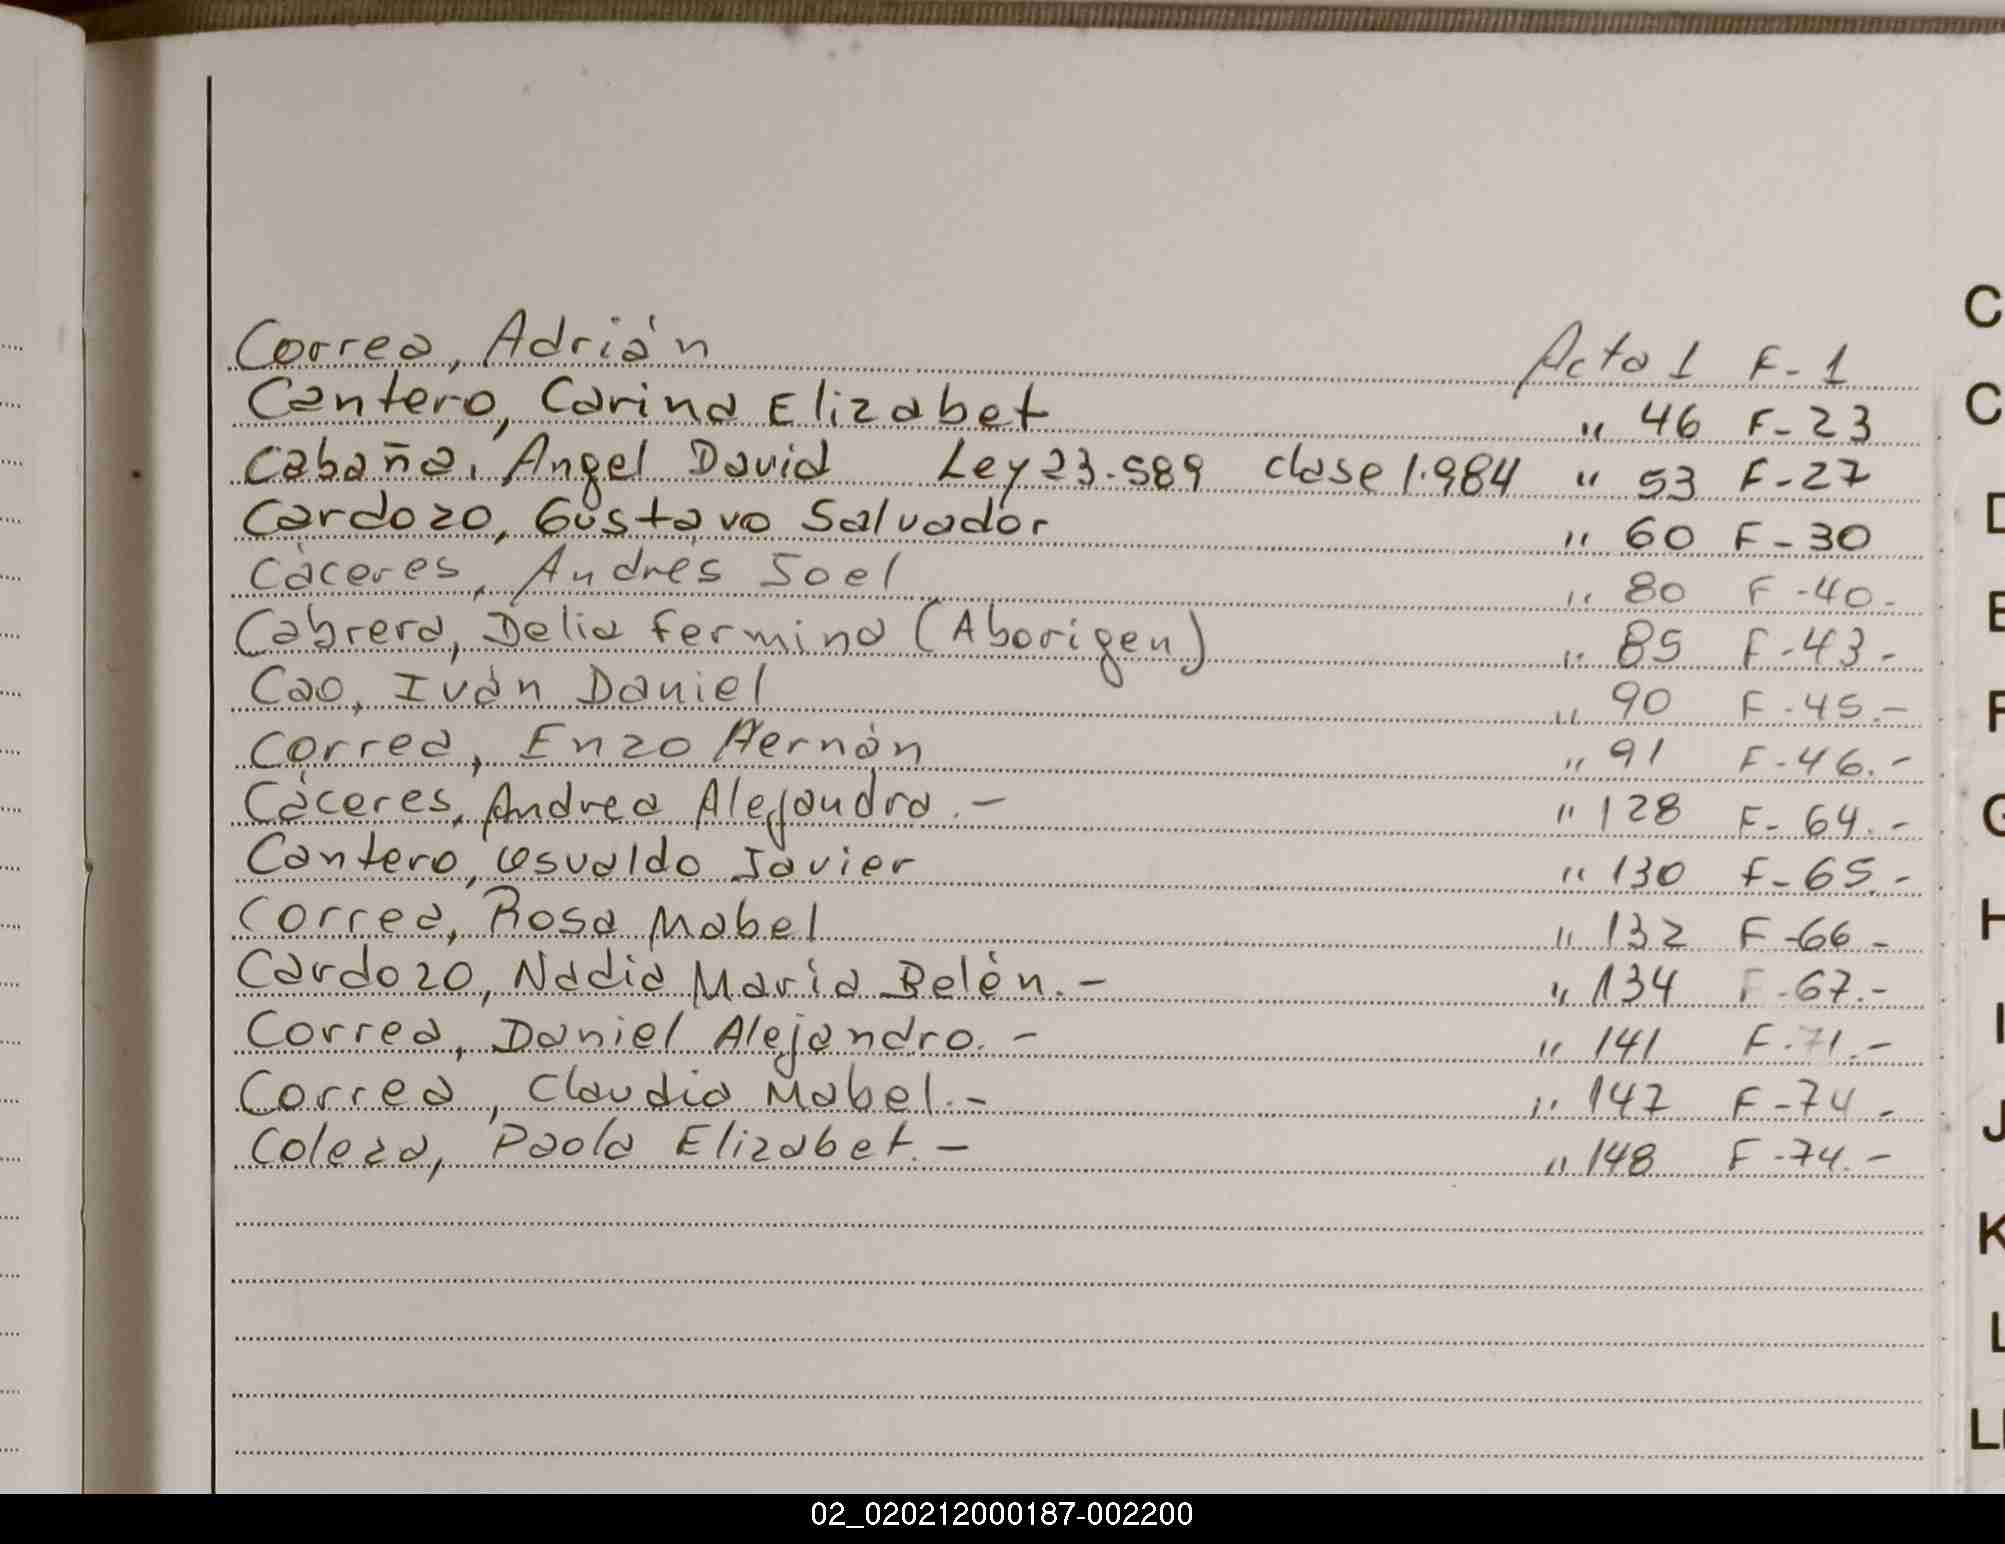 Correa, Adrián Acta 1 F-1
Cantero, Carina Elizabet " 46 F-23
Cabaña, Angel David Ley 23.589 clase 1.984 " 53 F-27
Cardozo, Gustavo Salvador " 60 F-30
Cáceres, Andrés Joel " 80 F-40-
Cabrera, Delia Fermina (Aborigen) " 85 F-43-
Cao, Iván Daniel " 90 F-45.-
Correa, Enzo Hernán " 91 F-46.-
Cáceres, Andrea Alejandra.- " 128 F-64.-
Cantero, Osvaldo Javier " 130 F-65.-
Correa, Rosa Mabel " 132 F-66-
Cardozo, Nadia María Belén.- " 134 F-67.-
Correa, Daniel Alejandro.- " 141 F-71.-
Correa, Claudia Mabel.- " 147 F-74-
Coleza, Paola Elizabet.- " 148 F-74.-
C
C
D
E
F
G
H
I
J
K
L
LL
02_020212000187-002200